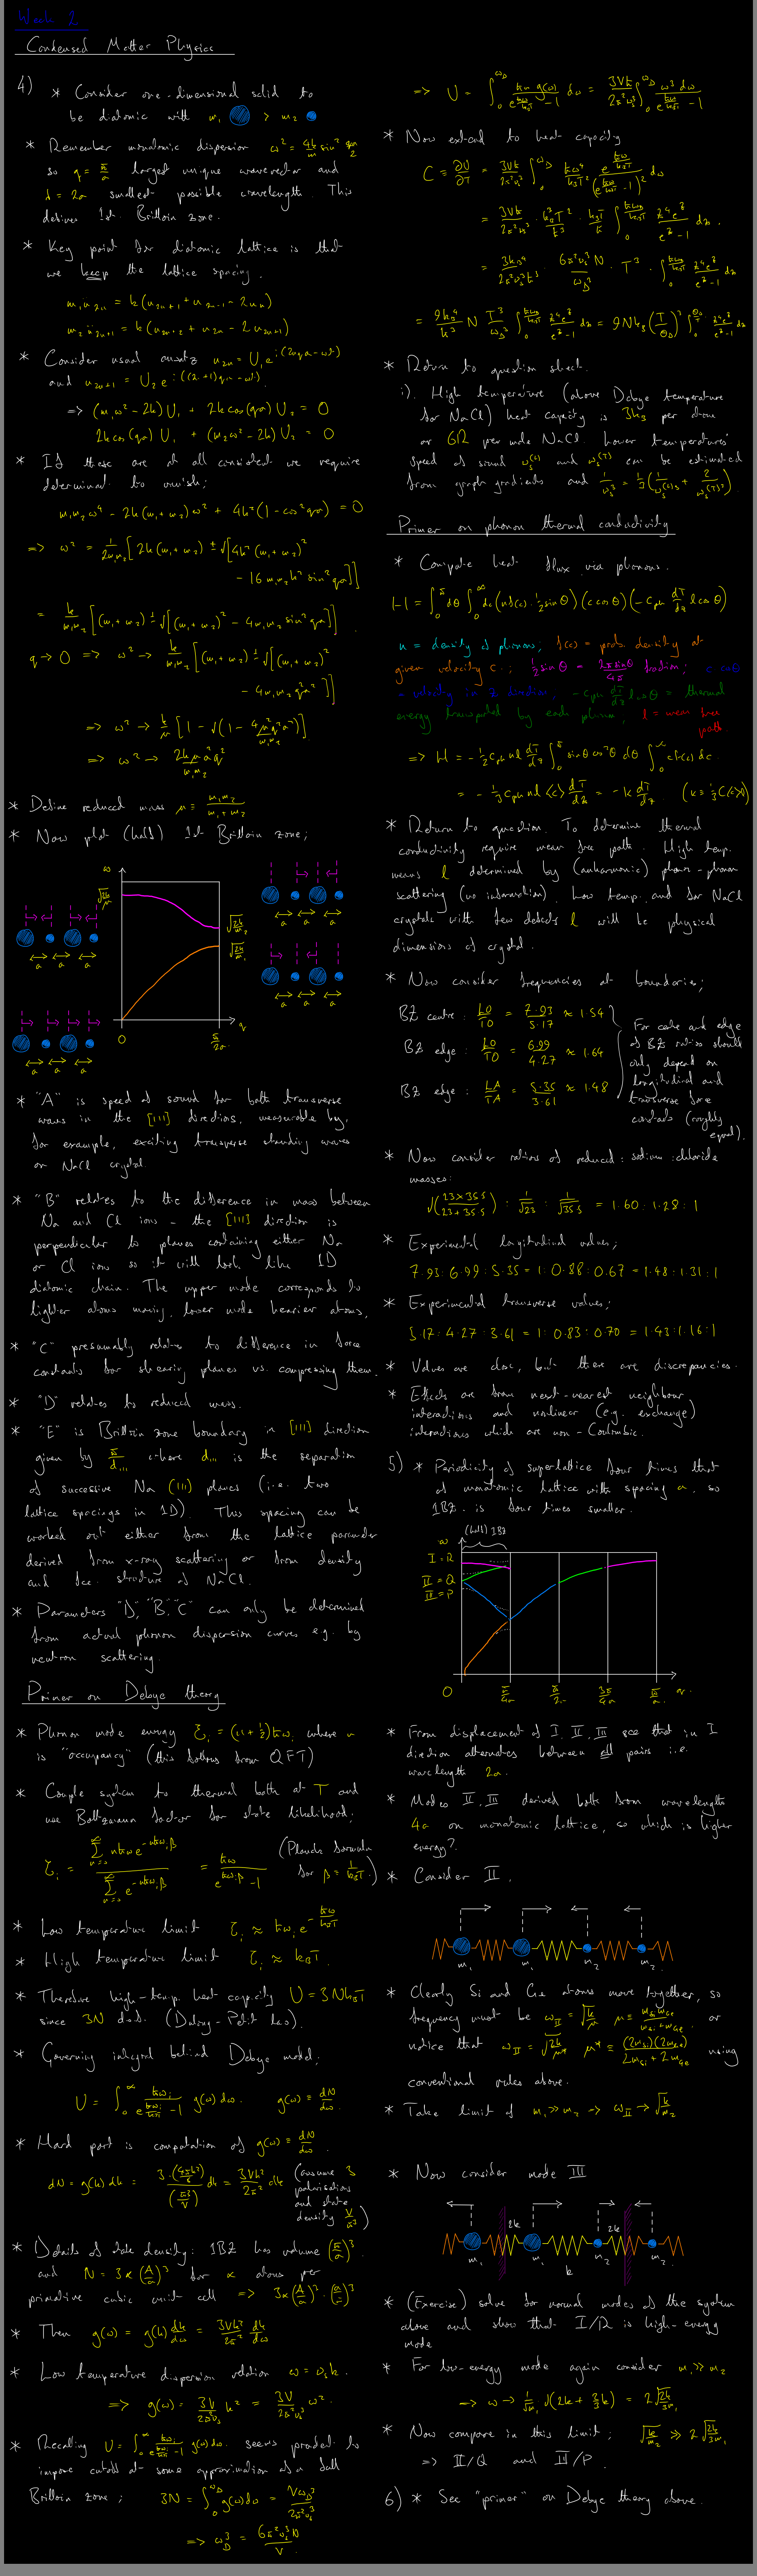 Week 2
Condensed Matter Physics
4) * Consider one-dimensional solid to
be diatomic with m₁ > m₂
* Remember monatomic dispersion ω² = 4k/m sin² qa/2
so q = π/a largest unique wavevector and
λ = 2a smallest possible wavelength. This
defines 1st Brilloin zone.
* Key point for diatomic lattice is that
we keep the lattice spacing.
m₁ü₂ₙ = k(u₂ₙ₊₁ + u₂ₙ₋₁ - 2u₂ₙ)
m₂ü₂ₙ₊₁ = k(u₂ₙ₊₂ + u₂ₙ - 2u₂ₙ₊₁)
* Consider usual ansatz u₂ₙ = U₁e^{i(2nqa-ωt)}
and u₂ₙ₊₁ = U₂e^{i((2n+1)qa-ωt)}.
=> (m₁ω² - 2k)U₁ + 2k cos(qa)U₂ = 0
2k cos(qa)U₁ + (m₂ω² - 2k)U₂ = 0
* If these are at all consistent we require
determinant to vanish;
m₁m₂ω⁴ - 2k(m₁+m₂)ω² + 4k²(1 - cos²qa) = 0
=> ω² = 1/2m₁m₂ [2k(m₁+m₂) ± √[4k²(m₁+m₂)²
- 16m₁m₂k² sin²qa]]
= k/m₁m₂ [(m₁+m₂) ± √[(m₁+m₂)² - 4m₁m₂ sin²qa]].
q → 0 => ω² → k/m₁m₂ [(m₁+m₂) ± √[(m₁+m₂)²
- 4m₁m₂q²a²]]
=> ω² → k/μ [1 - √(1 - 4μ²q²a²/m₁m₂)]
=> ω² → 2kμa²q²/m₁m₂
* Define reduced mass μ ≡ m₁m₂/m₁+m₂
* Now plot (half) 1st Brilloin zone;
ω
√2k/μ
√2k/m₂
√2k/m₁
a a a
a a a
a a a
a a a
0
π/2a
q
* "A" is speed of sound for both transverse
waves in the [111] direction, measurable by,
for example, exciting transverse standing waves
on NaCl crystal.
* "B" relates to the difference in mass between
Na and Cl ions - the [111] direction is
perpendicular to planes containing either Na
or Cl ions so it will look like 1D
diatomic chain. The upper mode corresponds to
lighter atoms moving, lower mode heavier atoms.
* "C" presumably relates to difference in force
constants for shearing planes vs. compressing them.
* "D" relates to reduced mass.
* "E" is Brilloin zone boundary in [111] direction
given by π/d₁₁₁ where d₁₁₁ is the separation
of successive Na (111) planes (i.e. two
lattice spacings in 1D). This spacing can be
worked out either from the lattice parameter
derived from x-ray scattering or from density
and fcc. structure of NaCl.
* Parameters "D", "B", "C" can only be determined
from actual phonon dispersion curves e.g. by
neutron scattering.
Primer on Debye theory
* Phonon mode energy ξᵢ = (n + ½)ħωᵢ where n
is "occupancy" (this follows from QFT)
* Couple system to thermal bath at T and
use Boltzmann factor for state likelihood;
ξᵢ = Σ nħωᵢe^{-nħωᵢβ} / Σ e^{-nħωᵢβ} = ħωᵢ/e^{ħωᵢβ}-1 (Plancks formula for β = 1/k_BT)
* Low temperature limit ξᵢ ≈ ħωᵢe^{-ħωᵢ/k_BT}
* High temperature limit ξᵢ ≈ k_BT.
* Therefore high-temp. heat capacity U = 3Nk_BT
since 3N d.o.f. (Dulong-Petit law).
* Governing integral behind Debye model;
U = ∫₀^∞ ħωᵢ/e^{ħωᵢ/k_BT}-1 g(ω)dω. g(ω) = dN/dω
* Hard part is computation of g(ω) = dN/dω.
dN = g(k)dk = 3·(4πk²/8)/(π³/V) dk = 3Vk²/2π² dk (assume 3 polarisations and state density V/π³)
* Details of state density: 1BZ has volume (π/a)³
and N = 3α(A/a)³ for α atoms per
primitive cubic unit cell => 3α(A/a)³·(a/π)³
* Then g(ω) = g(k)dk/dω = 3Vk²/2π² dk/dω
* Low temperature dispersion relation ω = v_s k.
=> g(ω) = 3V/2π²v_s k² = 3V/2π²v_s³ ω².
* Recalling U = ∫₀^∞ ħωᵢ/e^{ħωᵢ/k_BT}-1 g(ω)dω. seems prudent to
impose cutoff at some approximation of a full
Brilloin zone; 3N = ∫₀^{ω_D} g(ω)dω = Vω_D³/2π²v_s³
=> ω_D³ = 6π²v_s³N/V.
=> U = ∫₀^{ω_D} ħω g(ω)/e^{ħω/k_BT}-1 dω = 3Vħ/2π²v_s³ ∫₀^{ω_D} ω³dω/e^{ħω/k_BT}-1
* Now extend to heat capacity
C ≡ ∂U/∂T = 3Vħ/2π²v_s³ ∫₀^{ω_D} ħω⁴/k_BT² e^{ħω/k_BT}/(e^{ħω/k_BT}-1)² dω
= 3Vħ/2π²v_s³ · k_B³T²/ħ³ · k_BT/ħ ∫₀^{ħω_D/k_BT} z⁴e^z/e^z-1 dz.
= 3k_B⁴/2π²v_s³ħ³ · 6π²v_s³N/ω_D³ · T³ · ∫₀^{ħω_D/k_BT} z⁴e^z/e^z-1 dz
= 9k_B⁴/ħ³ N T³/ω_D³ ∫₀^{ħω_D/k_BT} z⁴e^z/e^z-1 dz = 9Nk_B(T/Θ_D)³ ∫₀^{Θ_D/T} z⁴e^z/e^z-1 dz
* Return to question sheet.
i). High temperature (above Debye temperature
for NaCl) heat capacity is 3k_B per atom
or 6R per mole NaCl. Lower temperatures'
speed of sound v_s^(L) and v_s^(T) can be estimated
from graph gradients and 1/v_s³ = 1/3(1/v_s^(L)³ + 2/v_s^(T)³).
Primer on phonon thermal conductivity
* Compute heat flux via phonons.
H = ∫₀^π dθ ∫₀^∞ dc (nf(c)·½sinθ)(c cosθ)(-c_ph dT/dz l cosθ)
n = density of phonons; f(c) = prob. density at
given velocity c.; ½sinθ = 2π sinθ/4π fraction; c cosθ
= velocity in z direction; -c_ph dT/dz l cosθ = thermal
energy transported by each phonon; l = mean free
path.
=> H = -½c_ph nl dT/dz ∫₀^π sinθ cos²θ dθ ∫₀^∞ cf(c)dc.
= -⅓c_ph nl⟨c⟩ dT/dz = -κ dT/dz. (κ = ⅓C⟨c⟩l)
* Return to question. To determine thermal
conductivity require mean free path. High temp.
means l determined by (anharmonic) phonon-phonon
scattering (no information). Low temp. and for NaCl
crystals with few defects l will be physical
dimensions of crystal.
* Now consider frequencies at boundaries;
BZ centre: LO/TO = 7.93/5.17 ≈ 1.54
BZ edge: LO/TO = 6.99/4.27 ≈ 1.64
BZ edge: LA/TA = 5.35/3.61 ≈ 1.48
For centre and edge
of BZ ratios should
only depend on
longitudinal and
transverse force
constants (roughly
equal).
* Now consider ratios of reduced : sodium : chloride
masses:
√(23×35.5/23+35.5) : 1/√23 : 1/√35.5 = 1.60 : 1.28 : 1
* Experimental longitudinal values;
7.93 : 6.99 : 5.35 = 1 : 0.88 : 0.67 = 1.48 : 1.31 : 1
* Experimental transverse values;
5.17 : 4.27 : 3.61 = 1 : 0.83 : 0.70 = 1.43 : 1.16 : 1
* Values are close, but there are discrepancies.
* Effects are from next-nearest neighbour
interactions and nonlinear (e.g. exchange)
interactions which are non-Coulombic.
5) * Periodicity of superlattice four times that
of monatomic lattice with spacing a, so
1BZ. is four times smaller.
(half) 1BZ
ω
I = R
II = Q
III = P
0
π/4a
π/2a
3π/4a
π/a
q
* From displacement of I, II, III see that in I
direction alternates between all pairs i.e.
wavelength 2a.
* Modes II, III derived both from wavelength
4a on monatomic lattice, so which is higher
energy?
* Consider II.
m₁ m₁ m₂ m₂
* Clearly Si and Ge atoms move together, so
frequency must be ω_II = √k/μ μ = m_Si m_Ge/m_Si+m_Ge or
notice that ω_II = √2k/μ* μ* = (2m_Si)(2m_Ge)/2m_Si+2m_Ge using
conventional rules above.
* Take limit of m₁ >> m₂ → ω_II → √k/m₂
* Now consider mode III
2k 2k
m₁ m₁ k m₂ m₂
* (Exercise) solve for normal modes of the system
above and show that I/R is high-energy
mode
* For low-energy mode again consider m₁ >> m₂
=> ω → 1/√m₁ √(2k + ⅔k) = 2√2k/3m₁
* Now compare in this limit; √k/m₂ >> 2√2k/3m₁
=> II/Q and III/P.
6) * See "primer" on Debye theory above.